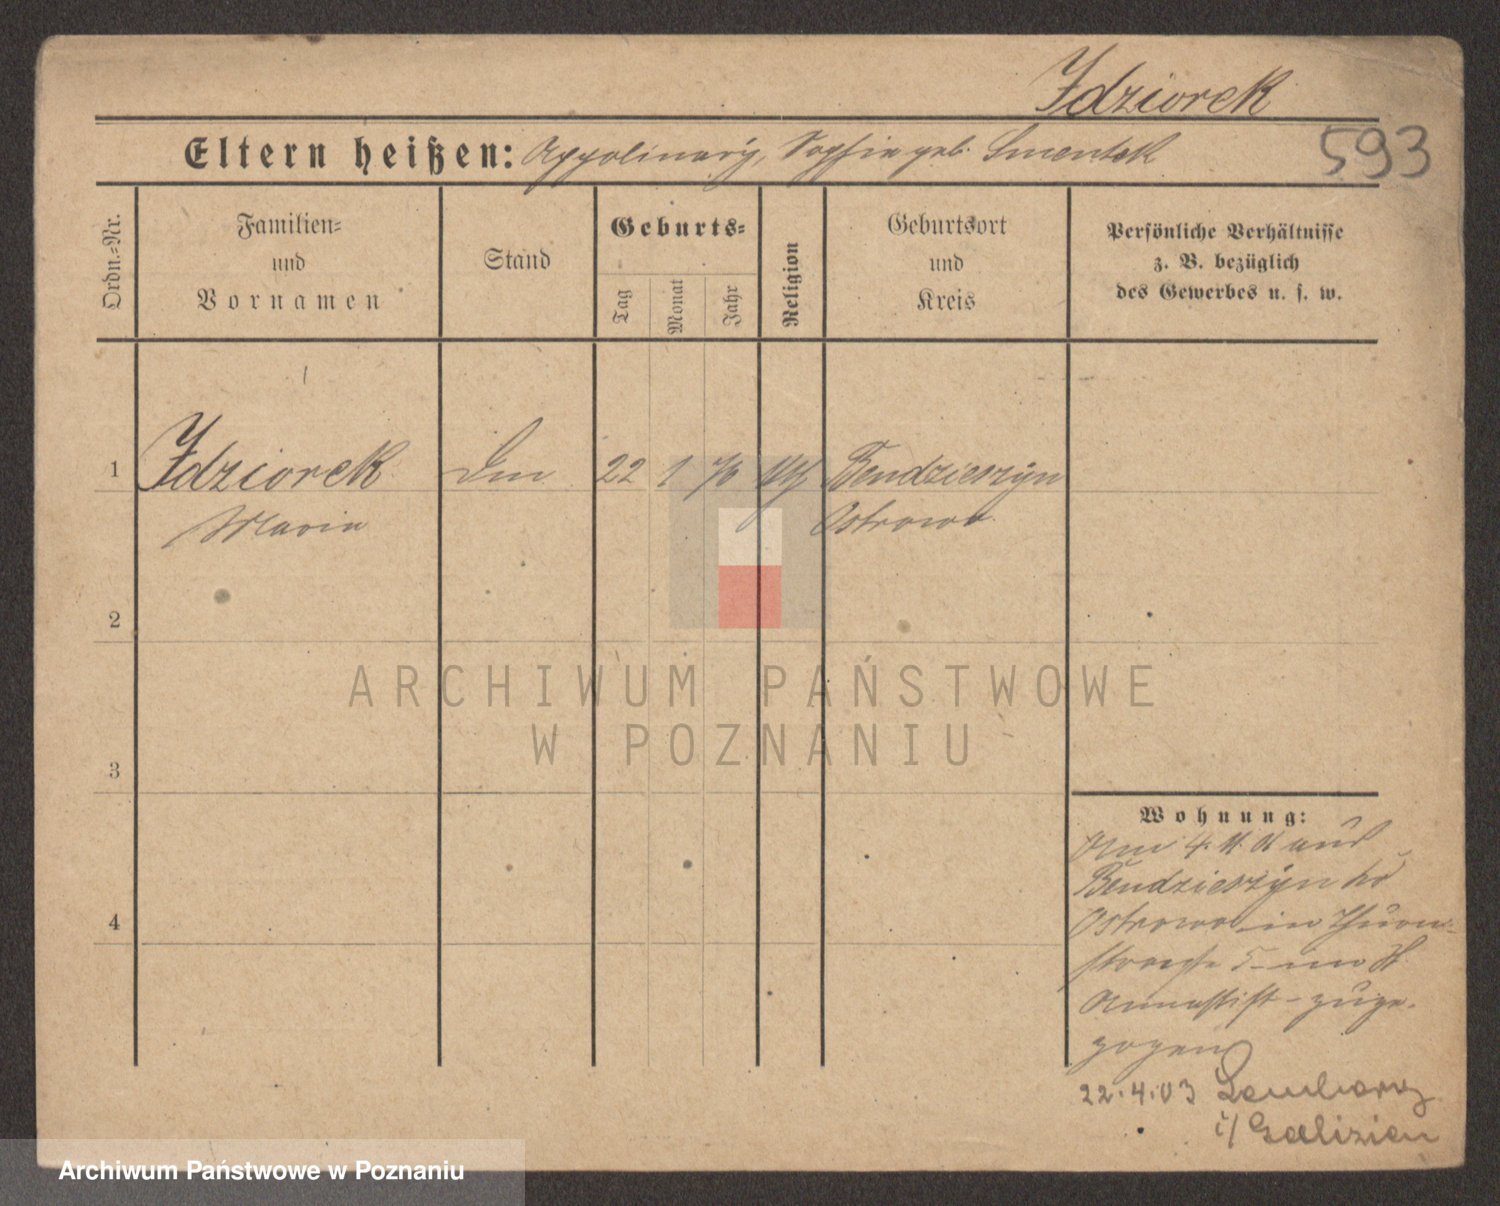 Idziorek
593
Eltern heißen: Appolinary, Sophie geb. Smentek
Ordn.-Nr.
Familien-
und
Vornamen
Stand
Geburts-
Tag
Monat
Jahr
Religion
Geburtsort
und
Kreis
Persönliche Verhältnisse
z. B. bezüglich
des Gewerbes u. s. w.
1 Idziorek 22 1 76 Bendzieszyn
Maria Ostrowo
2
3
4
Wohnung:
Am 4. aus
Bendzieszyn
Ostrowo in Thurm-
straße 5 im
Annastift - zuge-
zogen
22.4.03 Lemberg
i/ Galizien
ARCHIWUM PAŃSTWOWE
W POZNANIU
Archiwum Państwowe w Poznaniu